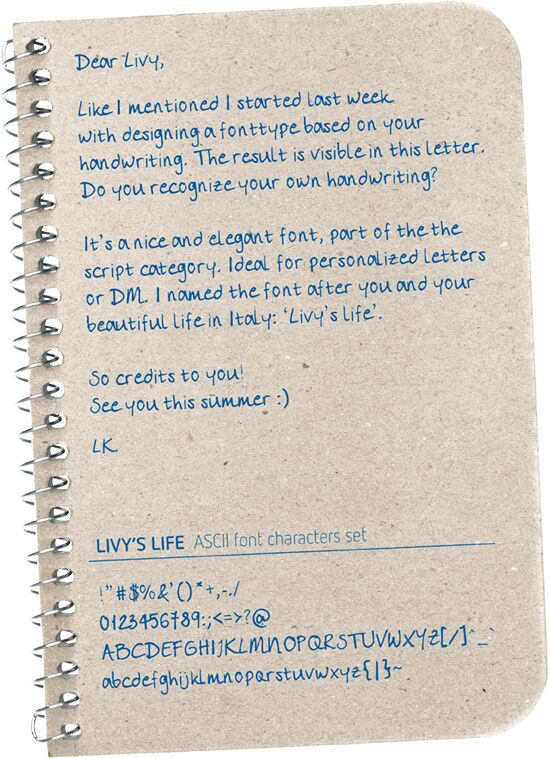 Dear Livy,
Like I mentioned I started last week
with designing a fonttype based on your
handwriting. The result is visible in this letter.
Do you recognize your own handwriting?
It's a nice and elegant font, part of the the
script category. Ideal for personalized letters
or DM. I named the font after you and your
beautiful life in Italy: ‘Livy's life’.
So credits to you!
See you this summer :)
LK
LIVY'S LIFE ASCII font characters set
!"#$%&'()*+,-./
0123456789:;<=>?@
ABCDEFGHIJKLMNOPQRSTUVWXYZ[/]^_`
abcdefghijklmnopqrstuvwxyz{|}~